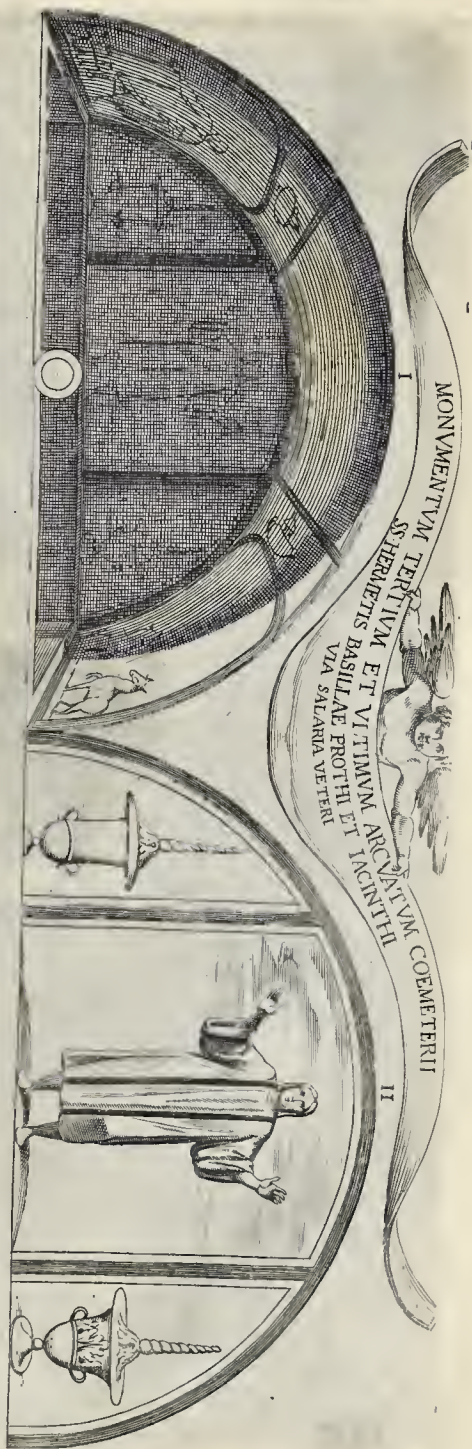 MONVMENTVM TERTIVM ET VLTIMVM ARCVATVM COEMETERII
SS. HERMETIS BASILLAE PROTHI ET IACINTHI
VIA SALARIA VETERI
I
II